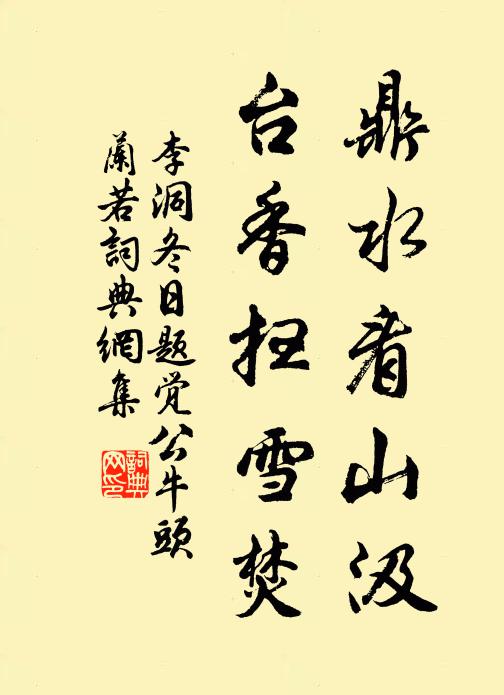 鼎水看山汲
台香扫雪焚
李洞冬日题觉公牛頭
蘭若詞典網集
詞典网印